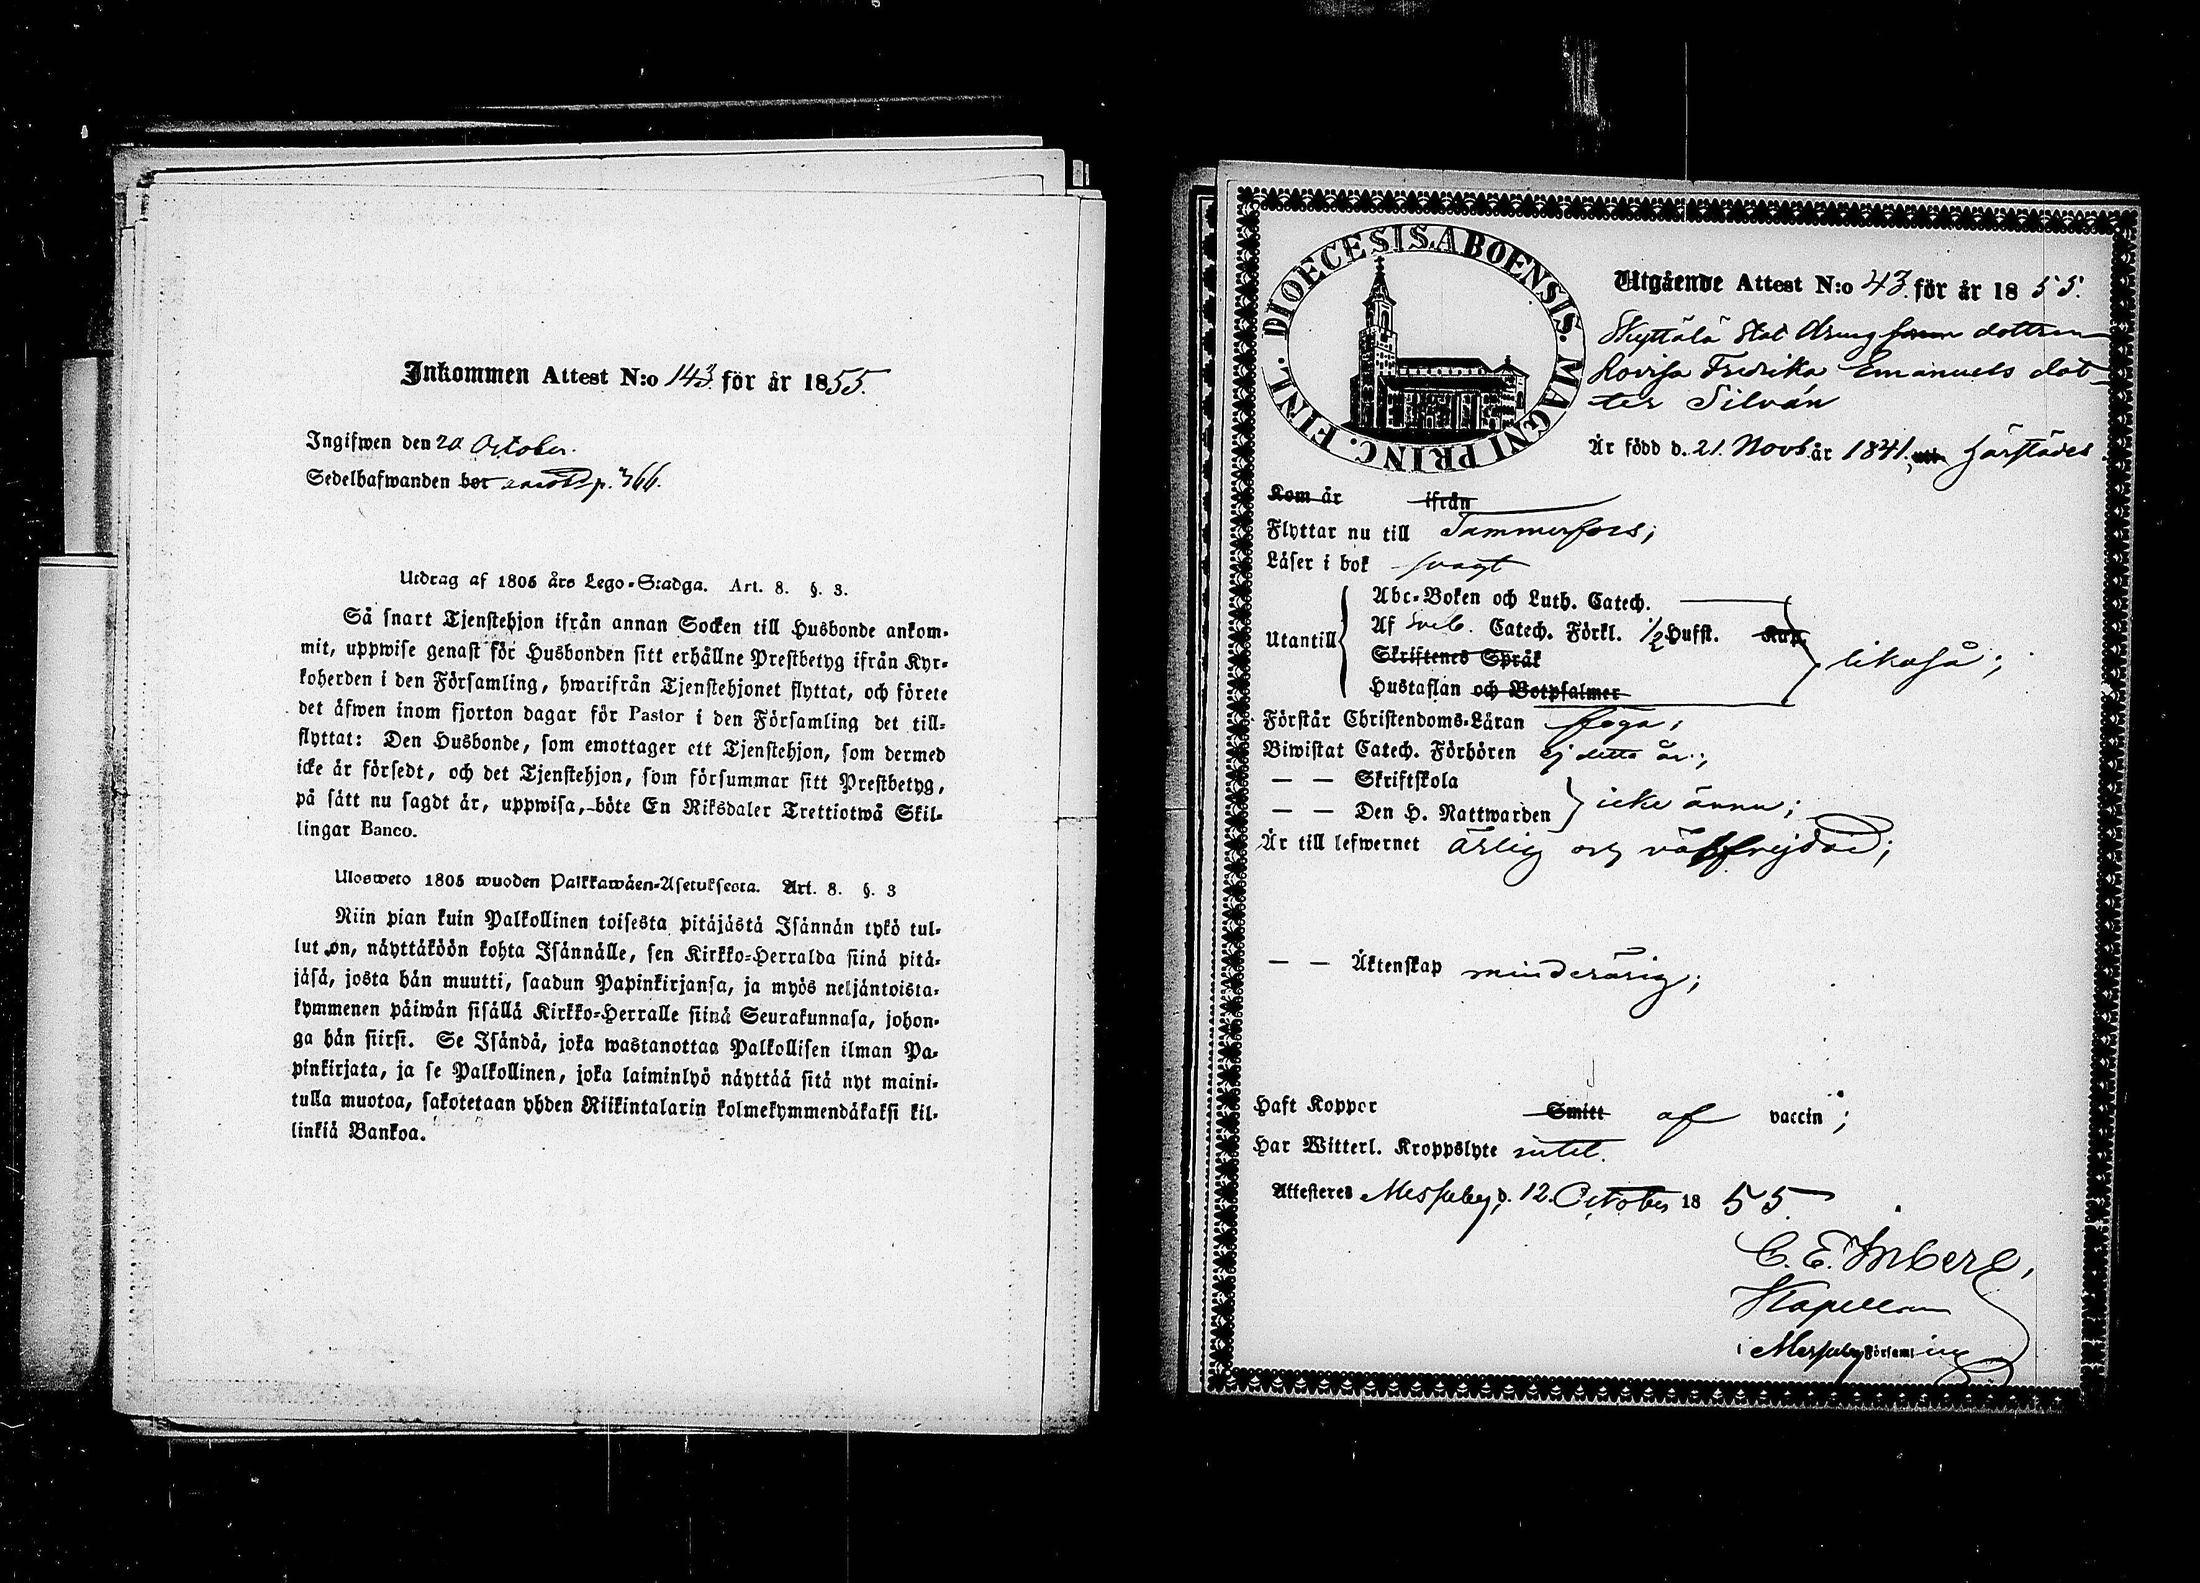 Inkommen Attest N:o 143 för år 1855.
Ingifwen den 20 October.
Sedelhafwanden bor p. 366.
Utdrag af 1805 års Lego-Stadga. Art. 8. §. 3.
Så snart Tjenstehjon ifrån annan Socken till Husbonde ankom-
mit, uppwise genast för Husbonden sitt erhållne Prestbetyg ifrån Kyr-
koherden i den Församling, hwarifrån Tjenstehjonet flyttat, och förete
det äfwen inom fjorton dagar för Pastor i den Församling det till-
flyttat: Den Husbonde, som emottager ett Tjenstehjon, som dermed
icke är försedt, och det Tjenstehjon, som försummar sitt Prestbetyg,
på sätt nu sagdt är, uppwisa, böte En Riksdaler Trettiotwå Skil-
lingar Banco.
Ulosweto 1805 wuoden Palkkawäen-Asetuksesta. Art. 8. §. 3
Niin pian kuin Palkollinen toisesta pitäjästä Isännän tykö tul-
lut on, näyttäköön kohta Isännälle, sen Kirkko-Herralda siinä pitä-
jäsä, josta hän muutti, saadun Papinkirjansa, ja myös neljäntoista-
kymmenen päiwän sisällä Kirkko-Herralle siinä Seurakunnasa, johon-
ga hän siirsi. Se Isändä, joka wastanottaa Palkollisen ilman Pa-
pinkirjata, ja se Palkollinen, joka laiminlyö näyttää sitä nyt maini-
tulla muotoa, sakotetaan yhden Riikintalarin kolmekymmendäkaksi kil-
linkiä Bankoa.
DIOECESIS. ABOENSIS. MAGNI PRINC. FINL.
Utgående Attest N:o 43. för år 1855.
Skyttälä Stat Dräng dottren
Lovisa Fredrika Emanuels dot-
ter Silvén
Är född d. 21. Novb. år 1841. uti härstädes
Kom år ifrån
Flyttar nu till Tammerfors;
Läser i bok svagt
Utantill
Abc-Boken och Luth. Catech.
Af Sveb. Catech. Förkl. 1/2 Hufst. Kap.
Skriftenes Språk
Hustaflan och Botpsalmer
likaså;
Förstår Christendoms-Läran föga;
Biwistat Catech. Förhören ej detta år;
— — Skriftskola
— — Den H. Nattwarden
icke ännu;
Är till lefwernet ärlig och välfrejdad;
— — Äktenskap minderårig;
Haft Koppor Smitt af vaccin;
Har Witterl. Kroppslyte intet.
Attesteras Messuby, d. 12. October 1855.
C. E. Inberg,
Kapellan
i Messuby Församl ing